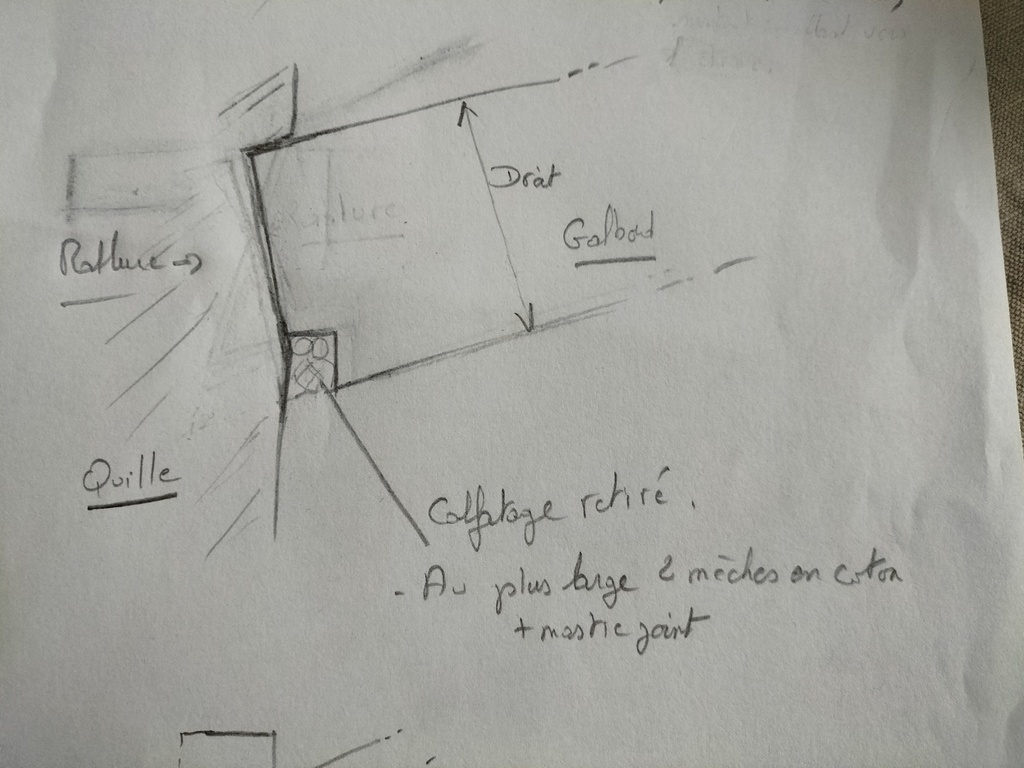 Droit
Galbord
Rablure →
Quille
Calfatage retiré.
- Au plus large 2 mèches en coton
+ mastic joint